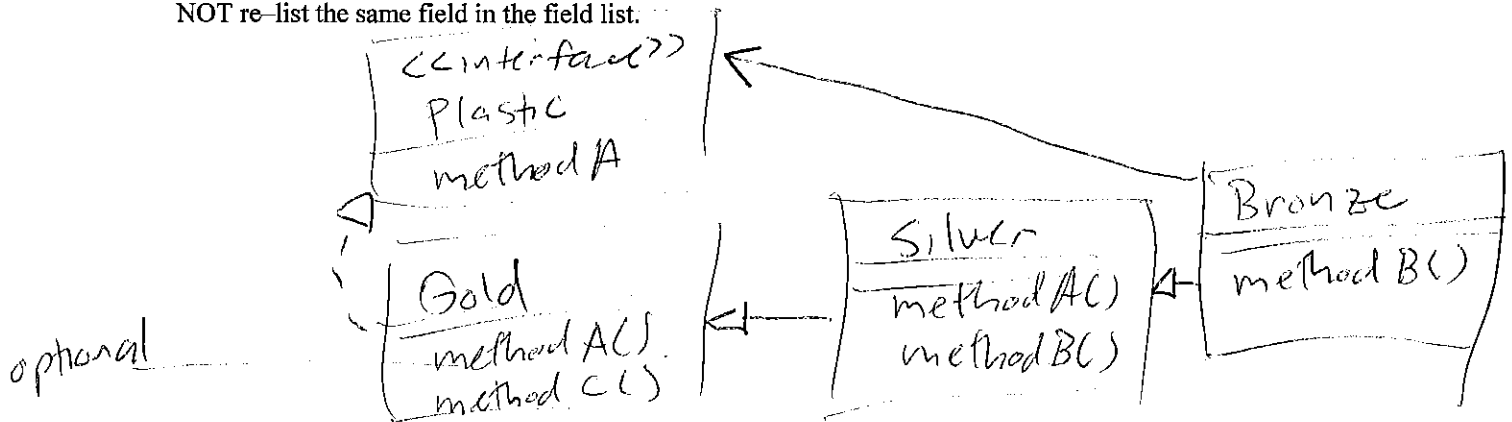 NOT re–list the same field in the field list.
<<interface>>
Plastic
method A
Gold
method A()
method C()
optional
Silver
method A()
method B()
Bronze
method B()